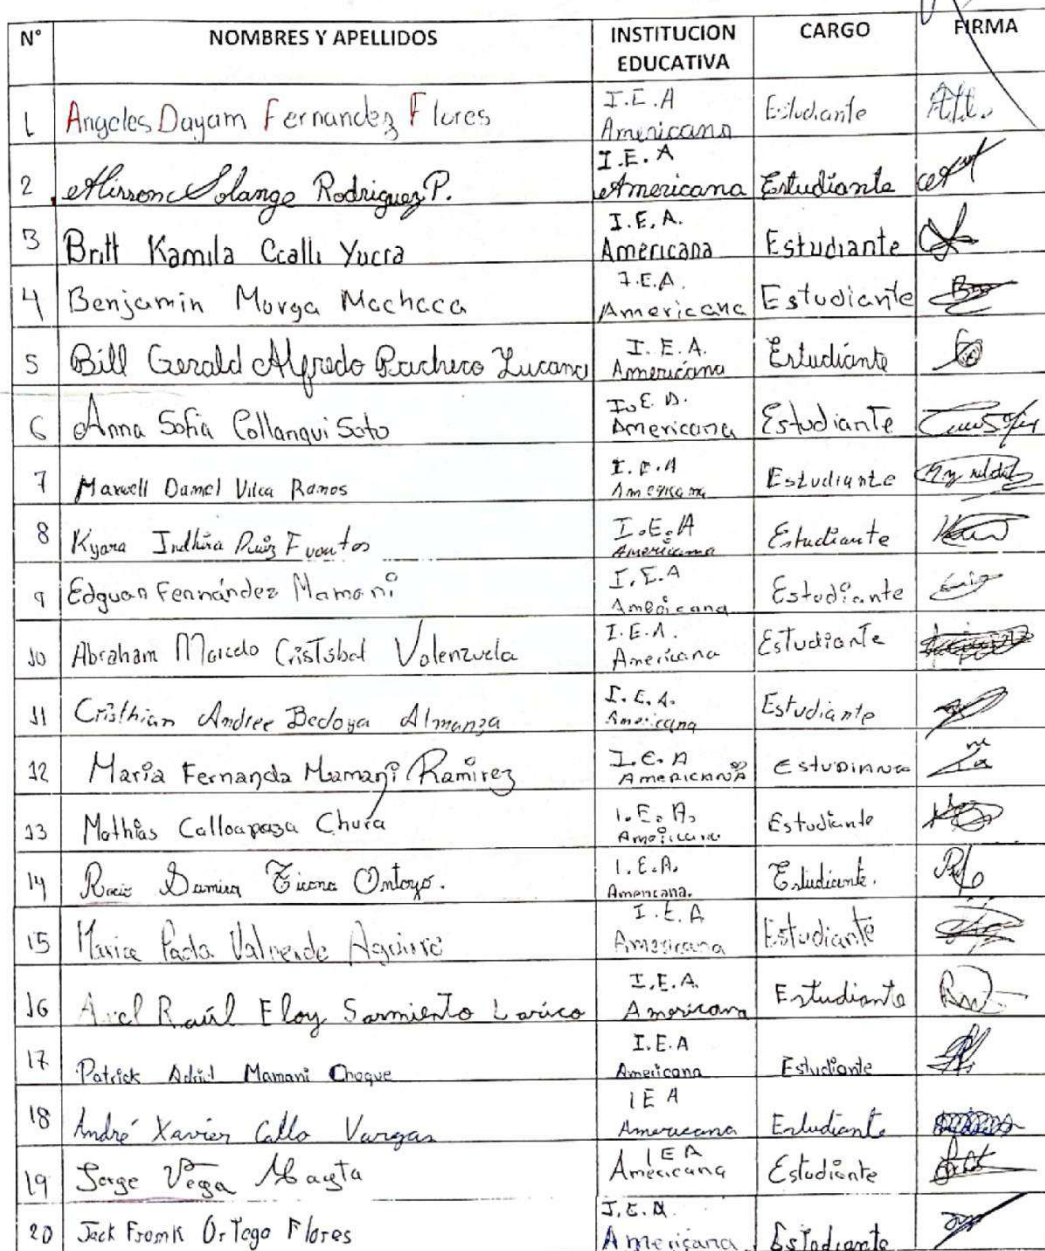 N° NOMBRES Y APELLIDOS INSTITUCION EDUCATIVA CARGO FIRMA
1 Angeles Dayam Fernandez Flores I.E.A Americana Estudiante
2 Alisson Solange Rodriguez P. I.E.A Americana Estudiante
3 Britt Kamila Ccalli Yucra I.E.A. Americana Estudiante
4 Benjamin Murga Machaca I.E.A. Americana Estudiante
5 Bill Gerald Alfredo Pacheco Lucano I.E.A. Americana Estudiante
6 Anna Sofia Collanqui Soto I.E.A. Americana Estudiante
7 Maxwell Daniel Vilca Ramos I.E.A Americana Estudiante
8 Kyara Indhira Ruiz Fuentes I.E.A Americana Estudiante
9 Edguan Fernández Mamani I.E.A Americana Estudiante
10 Abraham Marcelo Cristobal Valenzuela I.E.A. Americana Estudiante
11 Cristhian Andree Bedoya Almanza I.E.A. Americana Estudiante
12 Maria Fernanda Mamani Ramirez I.E.A Americana Estudiante
13 Mathias Calloapaza Chura I.E.A. Americana Estudiante
14 Rocio Samira Ticona I.E.A. Americana. Estudiante.
15 Maria Paola Valverde Aguirre I.E.A Americana Estudiante
16 Axel Raúl Eloy Sarmiento Larico I.E.A. Americana Estudiante
17 Patrick Mamani Choque I.E.A Americana Estudiante
18 André Xavier Callo Vargas IEA Americana Estudiante
19 Jorge Vega Mayta IEA Americana Estudiante
20 Jack Frank Ortega Flores I.E.A. Americana Estudiante